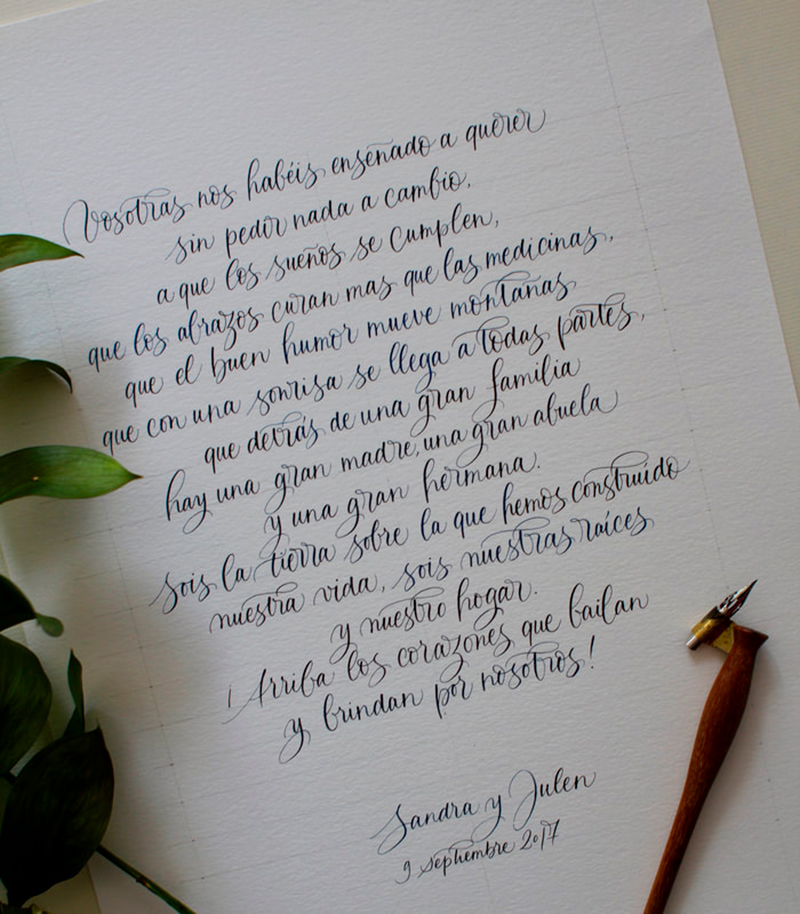 Vosotras nos habéis enseñado a querer
sin pedir nada a cambio,
a que los sueños se cumplen,
que los abrazos curan mas que las medicinas,
que el buen humor mueve montañas
que con una sonrisa se llega a todas partes,
que detrás de una gran familia
hay una gran madre, una gran abuela
y una gran hermana.
Sois la tierra sobre la que hemos construido
nuestra vida, sois nuestras raíces
y nuestro hogar.
¡Arriba los corazones que bailan
y brindan por nosotros!
Sandra y Julen
9 septiembre 2017